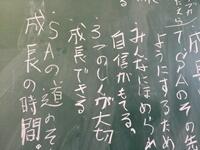 SAのその先
ようにするため
みんなにほめられ
自信がもてる。
3つの が大切
成長できる
SAの道のそ
成長の時間。